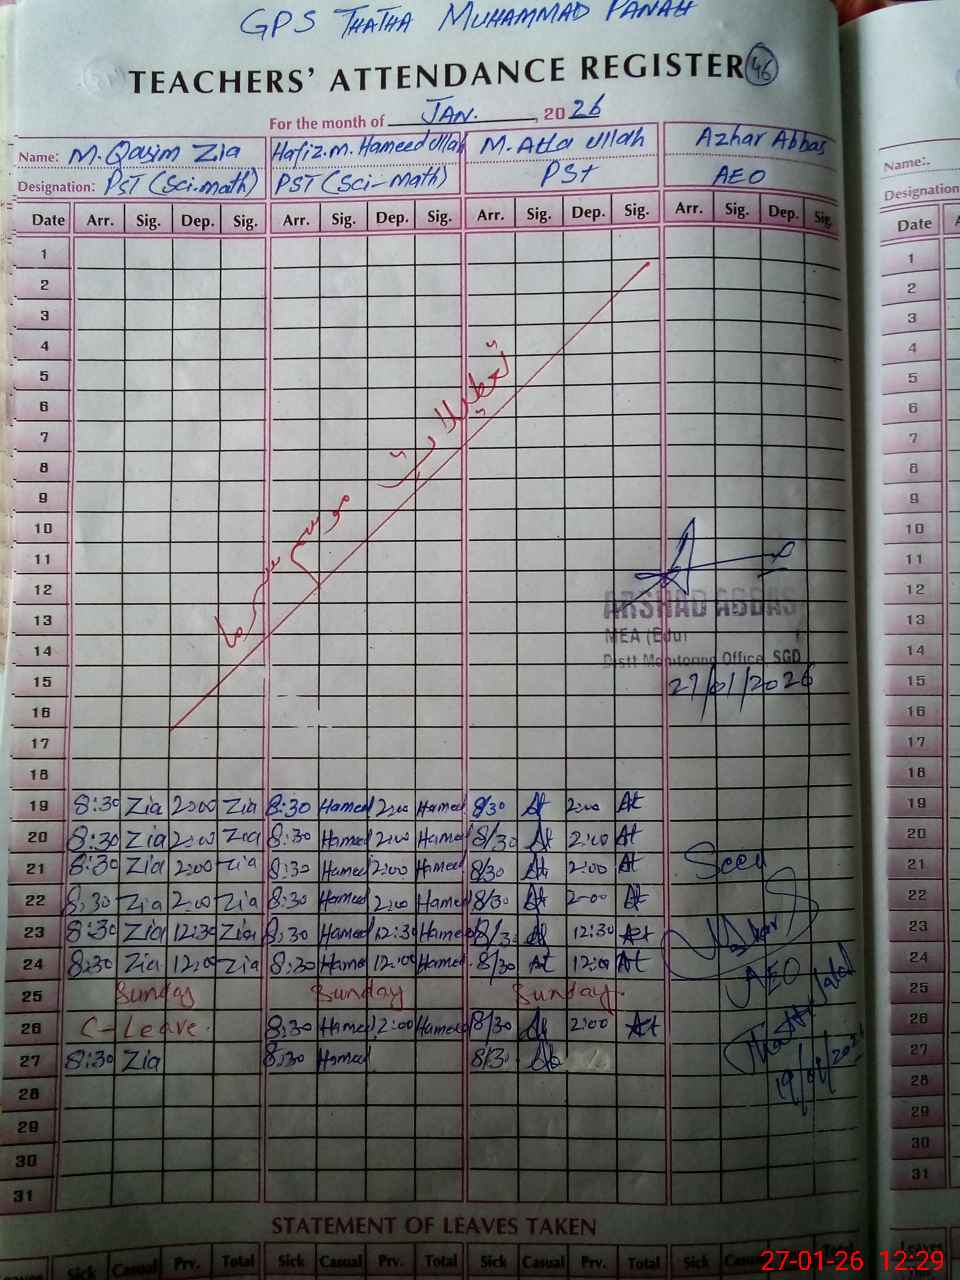 GPS THATHA MUHAMMAD PANAH
TEACHERS' ATTENDANCE REGISTER 46
For the month of JAN. , 2026
Name: M. Qasim Zia Hafiz. M. Hameed ullah M. Atta ullah Azhar Abbas
Designation: PST (Sci. math) PST (Sci-math) PST AEO
Date Arr. Sig. Dep. Sig. Arr. Sig. Dep. Sig. Arr. Sig. Dep. Sig. Arr. Sig. Dep. Sig.
1
2
3
4
5
6
7
8
9
10
11
12
13
14
15
16
17
18
تعطیلات موسم سرما
ARSHAD ABBAS
MEA (Edu)
Distt Monitoring Office, SGD
27/01/2026
19 8:30 Zia 2:00 Zia 8:30 Hameed 2:00 Hameed 8/30 At 2:00 At
20 8:30 Zia 2:00 Zia 8:30 Hameed 2:00 Hameed 8/30 At 2:00 At
21 8:30 Zia 2:00 Zia 8:30 Hameed 2:00 Hameed 8/30 At 2:00 At
22 8:30 Zia 2:00 Zia 8:30 Hameed 2:00 Hameed 8/30 At 2-00 At
23 8:30 Zia 12:30 Zia 8:30 Hameed 12:30 Hameed 8/30 At 12:30 At
24 8:30 Zia 12:00 Zia 8:30 Hameed 12:00 Hameed 8/30 At 12:00 At
25 Sunday Sunday Sunday
26 C-Leave. 8:30 Hameed 2:00 Hameed 8/30 At 2:00 At
27 8:30 Zia 8:30 Hameed 8/30
28
29
30
31
Seen
AEO
STATEMENT OF LEAVES TAKEN
Sick Casual Prv. Total Sick Casual Prv. Total Sick Casual Prv. Total Sick
Name:
Designation
Date
1
2
3
4
5
6
7
8
9
10
11
12
13
14
15
16
17
18
19
20
21
22
23
24
25
26
27
28
29
30
31
27-01-26 12:29